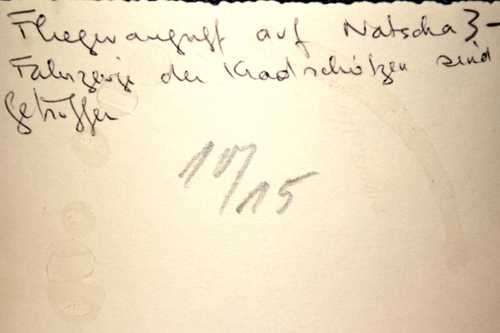 Fliegerangriff auf Natscha 3-
Fahrzeuge der Kradschützen sind
getroffen
10/15